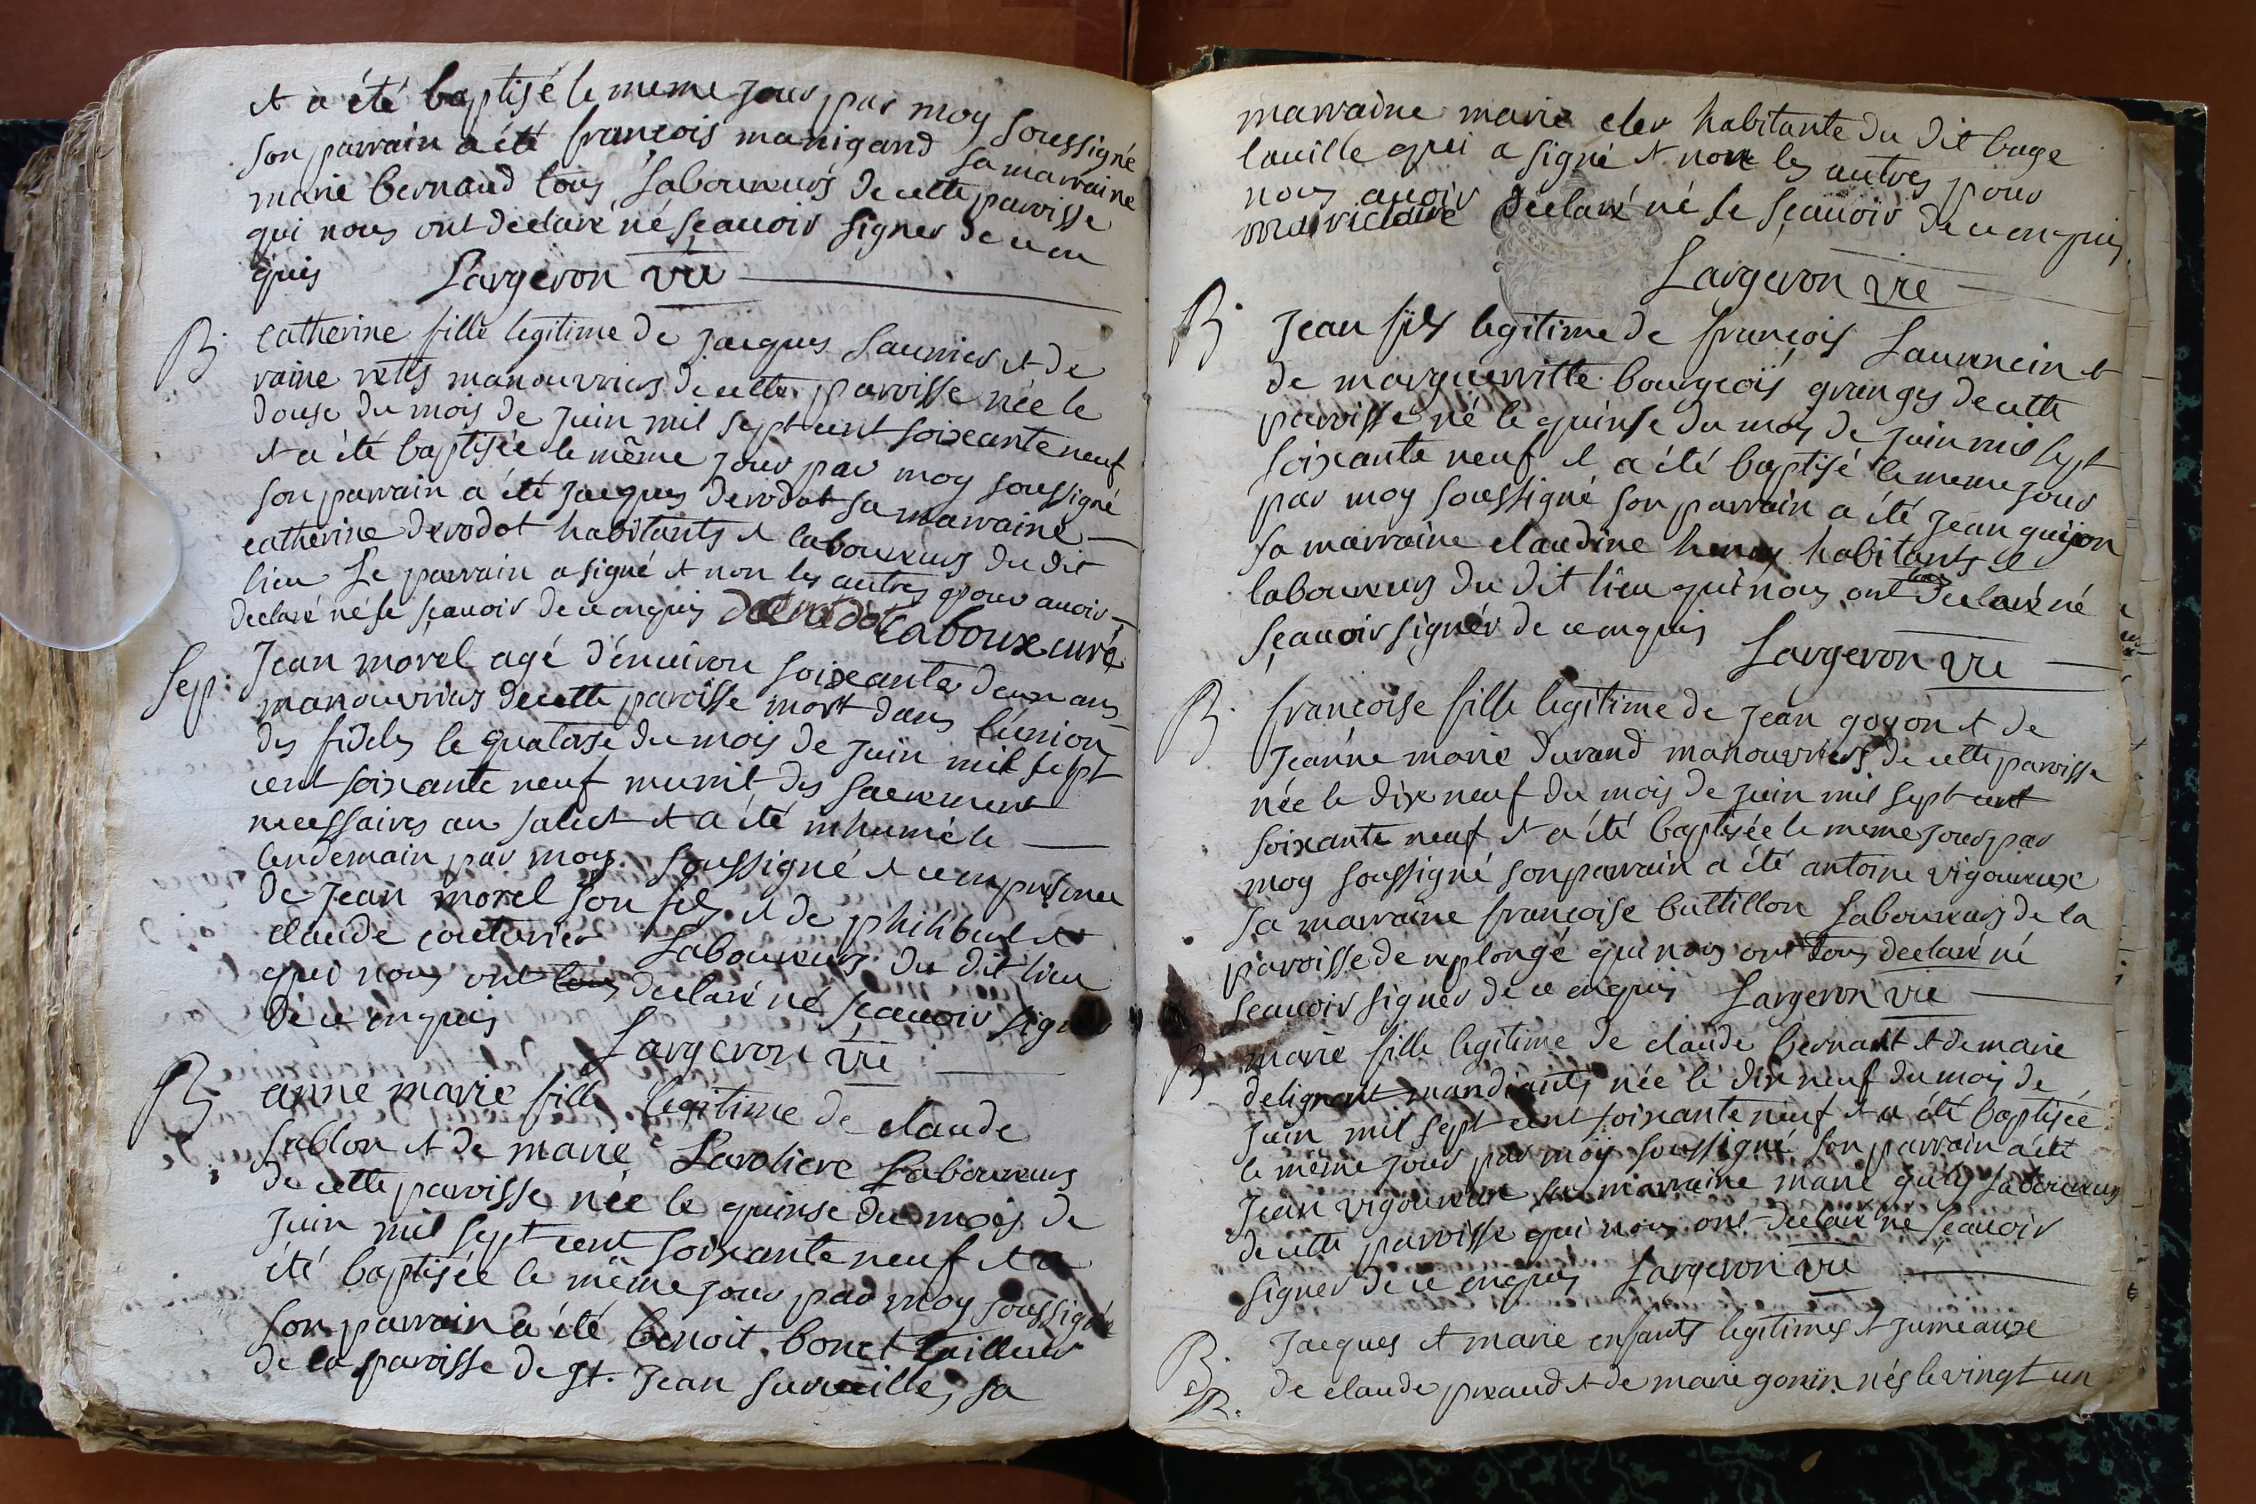 et a été baptisé le meme jour par moy soussigné
son parrain a été françois manigand sa marraine
marie bernaud tous laboureurs de cette paroisse
qui nous ont déclaré né sçauoir signer de ce en
quis Largeron vic
B. catherine fille legitime de jacques saunier et de
raine rettis manouvriers de cette paroisse née le
douse du mois de juin mil sept cent soixante neuf
et a été baptisée le même jour par moy soussigné
son parrain a été jacques derodot sa marraine
catherine derodot habitants et laboureurs du dit
lieu Le parrain a signé et non les autres pour auoir
declaré né le sçauoir de ce enquis derodot Laboux curé
Sep: Jean morel agé d'enuiron soixante deux ans
manouvrier de cette paroisse mort dans l'union
des fideles le quatorse du mois de juin mil sept
cent soixante neuf munit des sacrement
necessaires au salut et a été inhumé le
lendemain par moy soussigné et ce en presence
de jean morel son fils et de philibert et
claude couturier laboureurs du dit lieu
qui nous ont tous declaré né sçauoir signer
de ce enquis Largeron vic
B. anne marie fille legitime de claude
sablon et de marie Laroliere Laboureurs
de cette paroisse née le quinse du mois de
juin mil sept cent soixante neuf et a
été baptisée le même jour par moy soussigné
son parrain a été benoit bonet tailleur
de la paroisse de St. Jean surueille, sa
marraine marie cler habitante du dit bage
lauille qui a signé et non les autres pour
nous auoir declaré né le sçauoir de ce enquis
marie claire
Largeron vic
B. Jean fils legitime de françois Laurencin et
de marguerritte bourgeois granges de cette
paroisse né le quinse du moy de juin mil sept
soixante neuf et a été baptisé le meme jour
par moy soussigné son parrain a été jean guijon
sa marraine claudine henry habitants et
laboureurs du dit lieu qui nous ont tous declaré né
sçauoir signér de ce enquis Largeron vic
B. françoise fille legitime de jean goyon et de
Jeanne marie durand manouvriers de cette paroisse
née le dix neuf du mois de juin mil sept cent
soixante neuf et a été baptisée le meme jour par
moy soussigné son parrain a été antoine vigoureux
sa marraine françoise buttillon laboureurs de la
paroisse de replongé qui nous ont tous declaré né
sçauoir signer de ce enquis Largeron vic
B. marie fille legitime de claude bernard et de marie
delignant mandiants née le dix neuf du mois de
juin mil sept cent soixante neuf et a été baptisée
le même jour par moy soussigné son parrain a été
Jean vigoureux sa marraine marie laboureurs
de cette paroisse qui nous ont declaré né sçauoir
signer de ce enquis Largeron vic
B. Jacques et marie enfants legitimes et jumeaux
B. de claude preaud et de marie gonin nés le vingt un